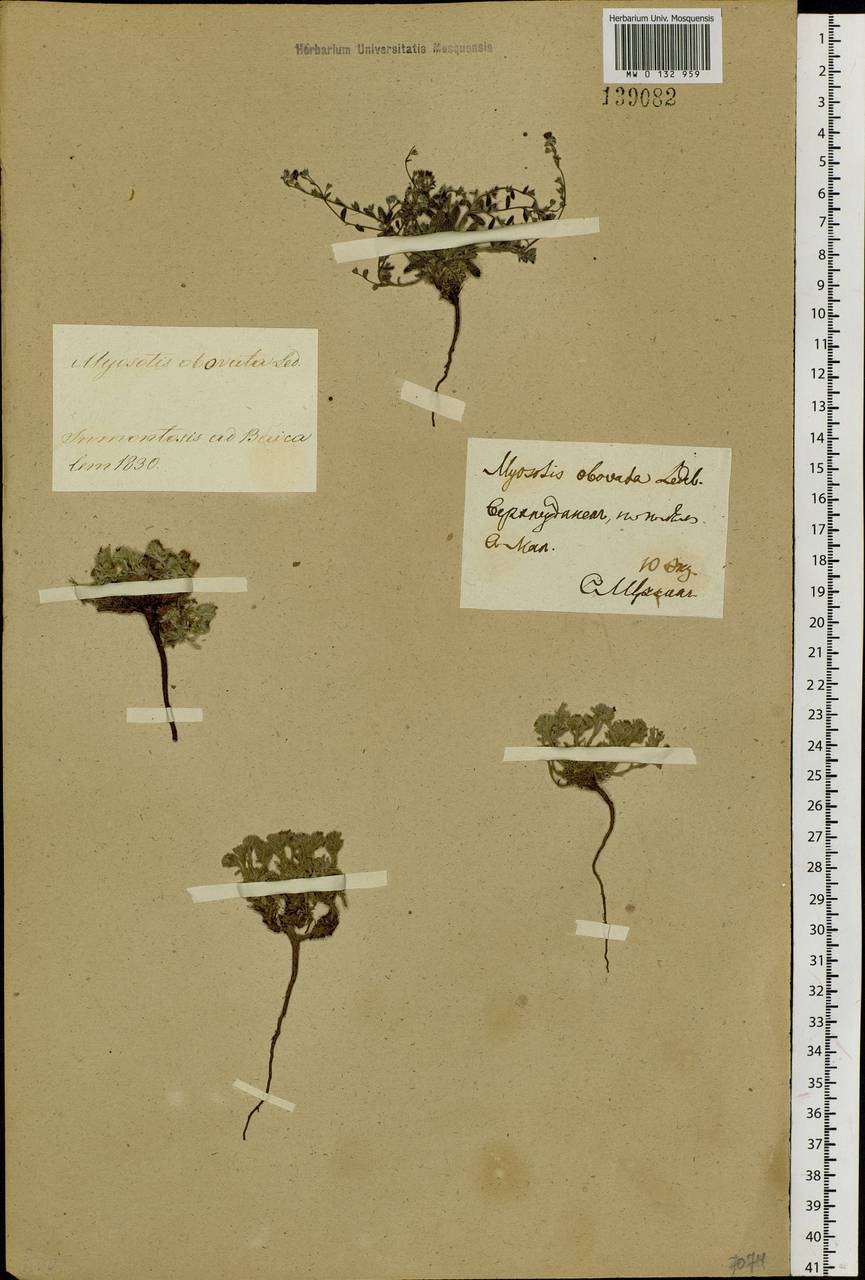 Herbarium Univ. Mosquensis
MW 0 132 959
139082
Herbarium Universitatis Mosquensis
Myosotis obovata Led.
In montosis ad Baica
lem 1830.
Myosotis obovata Ledb.
10
7074
1
2
3
4
5
6
7
8
9
10
11
12
13
14
15
16
17
18
19
20
21
22
23
24
25
26
27
28
29
30
31
32
33
34
35
36
37
38
39
40
41